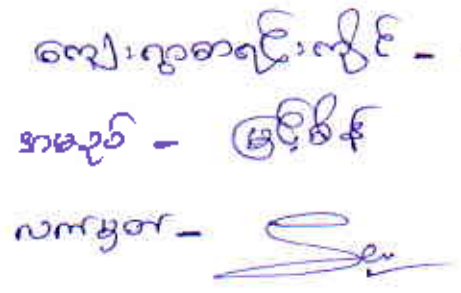 ကျေးရွာစာရင်းကိုင် -
အမည် - မြင့်စိန်
လက်မှတ် -